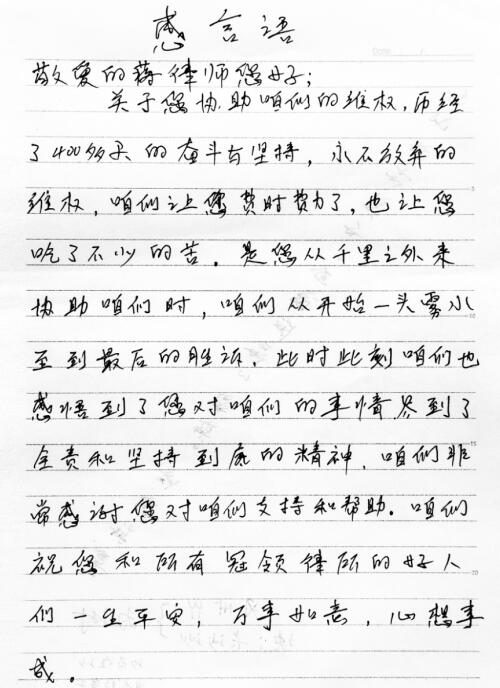 感言語
敬爱的蒋律师您好；
关于您协助咱们的维权，历经
了400多天的奋斗与坚持，永不放弃的
维权，咱们让您费时费力了，也让您
吃了不少的苦。是您从千里之外来
协助咱们时，咱们从开始一头雾水
至到最后的胜诉，此时此刻咱们也
感悟到了您对咱们的事情尽到了
全责和坚持到底的精神，咱们非
常感谢您对咱们支持和帮助。咱们
祝您和所有冠领律所的好人
们一生平安，万事如意，心想事
成。